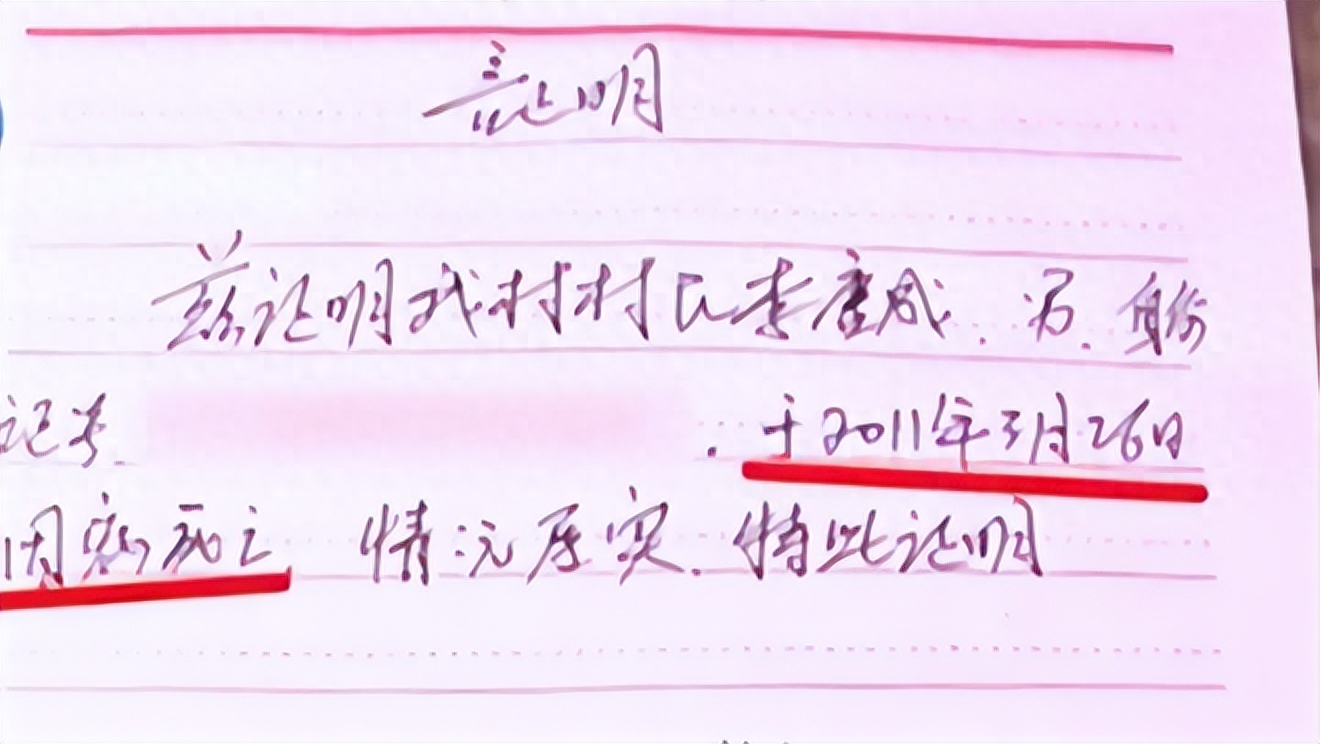 证明
兹证明我村村民李唐成.男.身份
记号. .于2011年3月26日
因病死亡 情况属实.特此证明